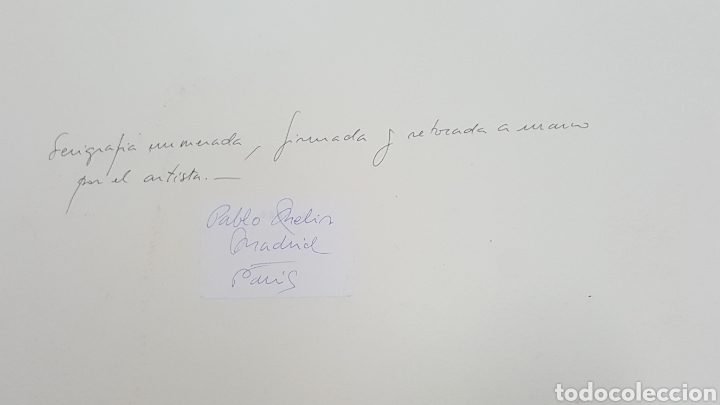 Serigrafia numerada, firmada y retocada a mano
por el artista. —
Pablo
Madrid
Paris
todocoleccion